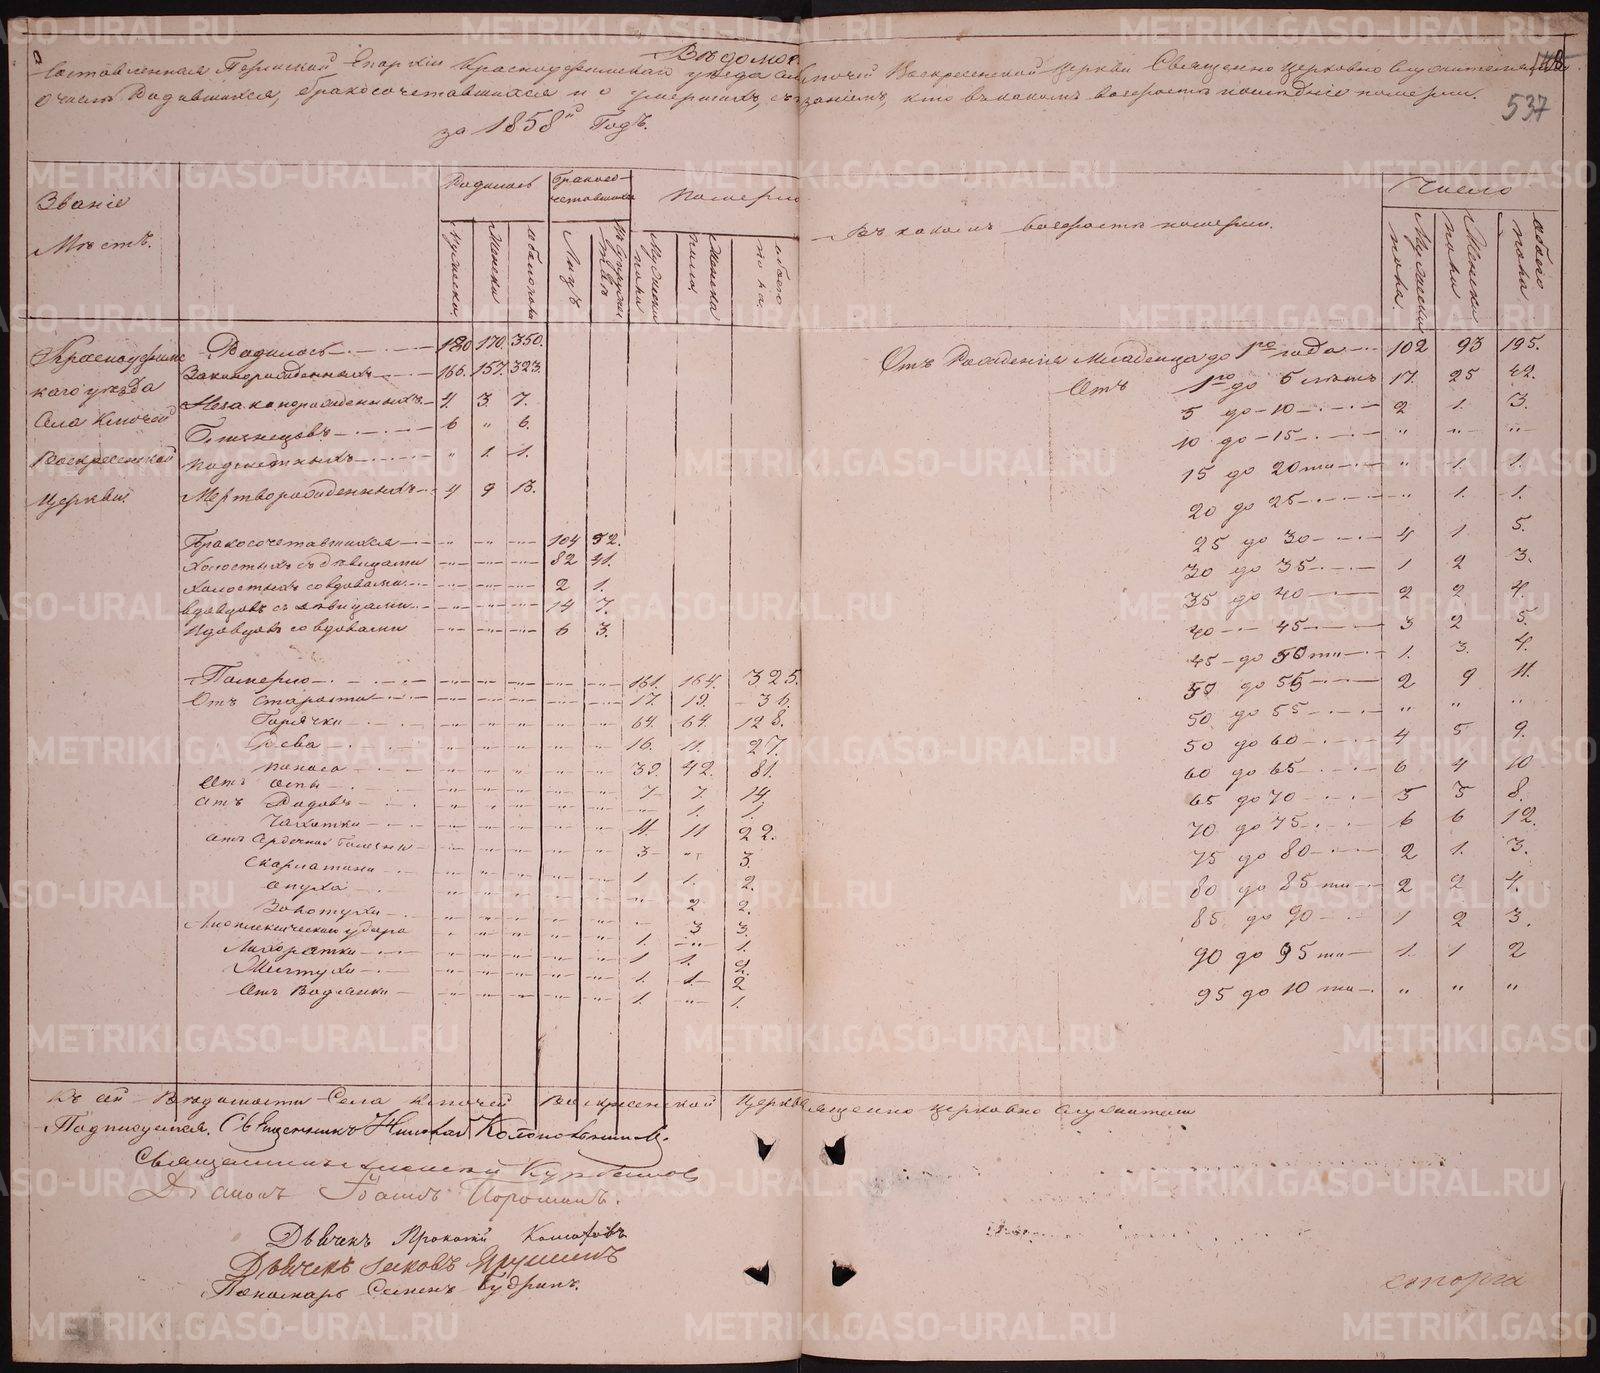 Вѣдомость
Составленная Пермской Епархіи Красноуфимскаго уѣзда села Ключей Воскресенской церкви Священно церковно служителями
о числѣ Родившихся, бракосочетавшихся и о умершихъ, съ указаніемъ, кто въ какомъ возрастѣ последніе померли.
537
за 1858й Годъ.
Званіе Мѣстъ.
Родилось
Бракосочетавшихся
Померло
Мужеска Женска обоего пола Лицъ Мужеска пола Женска пола обоего пола
Красноуфимскаго уѣзда Села Ключей Воскресенской Церкви
Родилось 180 170. 350.
Законорожденныхъ 166. 157. 323.
Незаконорожденныхъ 4. 3. 7.
Близнецовъ 6 " 6.
Подкидныхъ " 1. 1.
Мертворожденныхъ 4 9 13.
Бракосочетавшихся " " " 104 52.
Холостыхъ съ дѣвицами 82 41.
Холостыхъ со вдовами 2 1.
Вдовцовъ съ дѣвицами 14 7.
Вдовцовъ со вдовами 6 3.
Померло 161. 164. 325.
Отъ Старости 17. 19. 36.
Горячки 64. 64. 128.
Рева 16. 11. 27.
Поноса 39. 42. 81.
Отъ Оспы 7 7. 14.
Отъ Родовъ " 1. 1.
Чахотки 11. 11 22.
Отъ Сердечной Болезни 3 " 3.
Скарлатины 1 1. 2.
Опуха " 2 2.
Золотухи " 3 3.
Апоплексическаго удара 1. " 1.
Лихоратки 1 1. 2.
Жигтухи 1. 1. 2
Отъ Водянки 1. " 1.
Въ какомъ возрастѣ померли.
Число
Мужеска пола. Женска пола обоего пола
Отъ Рожденія Младенца до 1го года 102 93 195.
Отъ 1го до 5 лѣтъ 17. 25 42.
5 до 10 2 1. 3.
10 до 15 " " "
15 до 20ти " 1. 1.
20 до 25 " 1. 1.
25 до 30 4 1 5.
30 до 35 1 2 3.
35 до 40 2 2 4.
40 45 3 2 5.
45 до 50ти 1. 3. 4.
50 до 55 2 9 11.
50 до 55 " " "
50 до 60 4 5 9.
60 до 65 6 4 10
65 до 70 3 5 8.
70 до 75 6 6 12.
75 до 80 2 1. 3.
80 до 85 ти 2 2 4.
85 до 90 1 2 3.
90 до 95 ти 1. 1 2
95 до 10 ти " " "
Къ сей Вѣдомости Села Ключей Воскресенской Церкви Священно церковно служители
Подписуемся. Священникъ Николай
Священникъ Алексѣй Курбатов
Діаконъ
Дьячекъ
Дьячекъ Яковъ
Пономарь Семенъ Будринъ.
METRIKI.GASO-URAL.RU